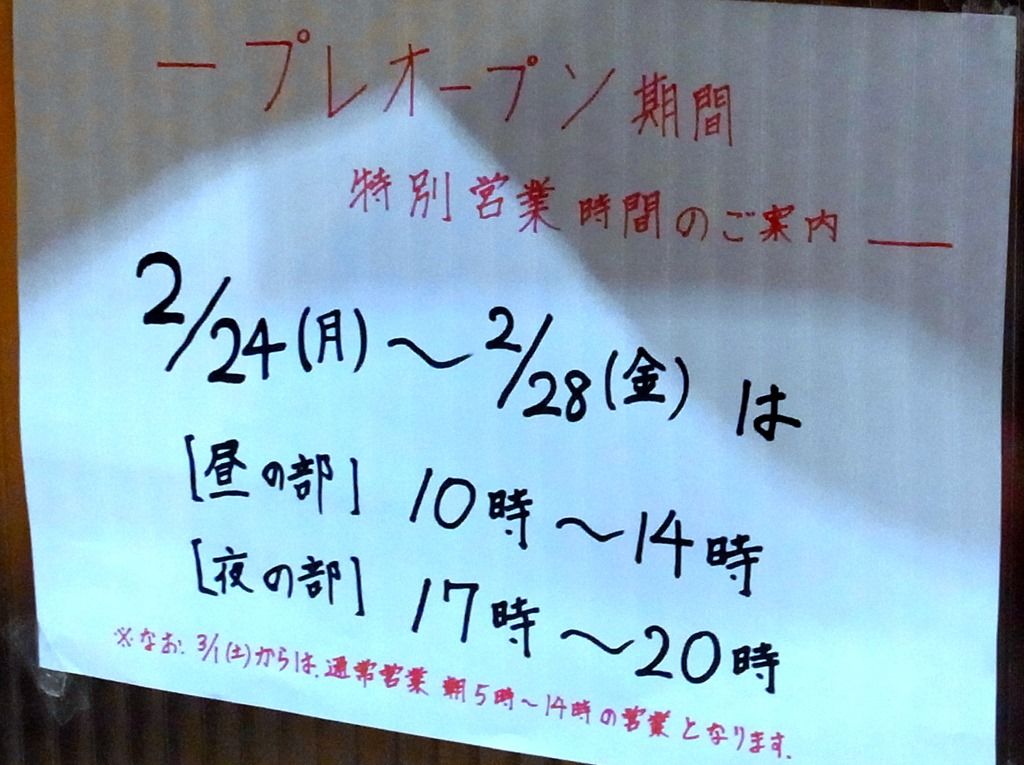 ープレオープン期間
特別営業時間のご案内ー
2/24(月)〜2/28(金)は
[昼の部] 10時〜14時
[夜の部] 17時〜20時
※なお、3/1(土)からは、通常営業 朝5時〜14時の営業となります。